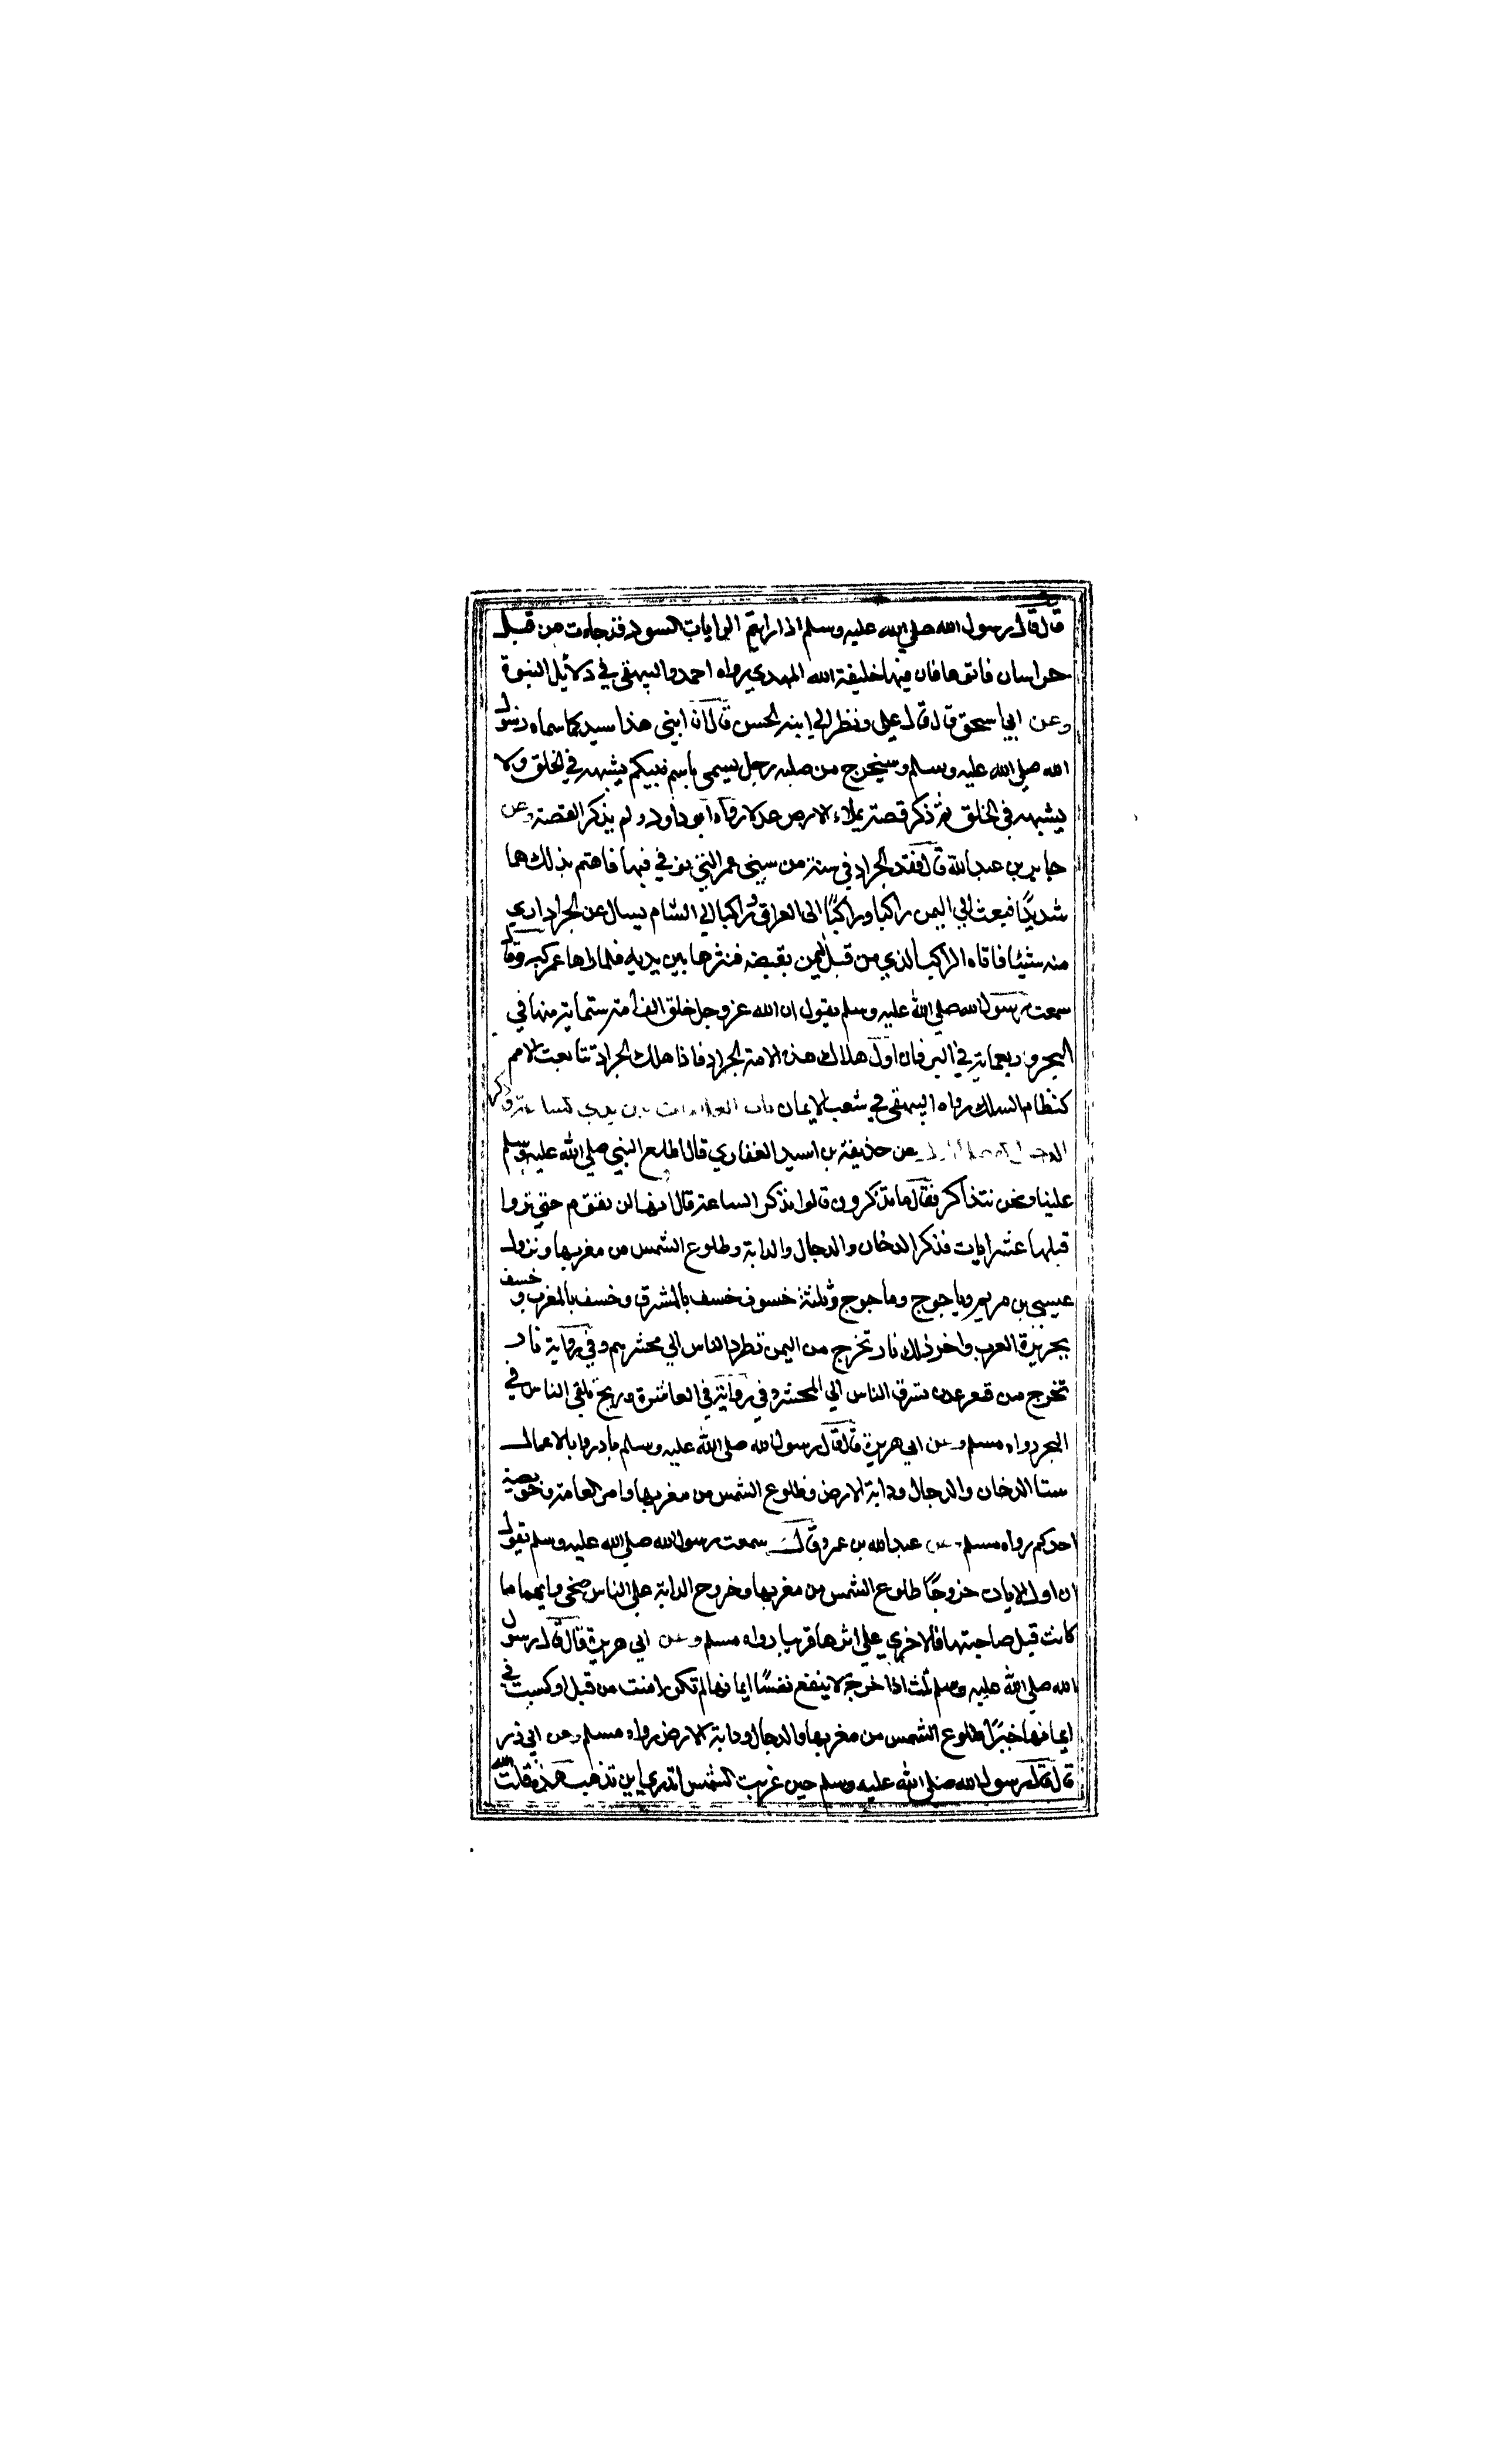 قال قال رسول الله صلي الله عليه وسلم اذا رايتم الرايات السود قد جاءت من قبل
خراسان فاتوها فان فيها خليفة الله المهدي رواه احمد والبيهقي في دلائل النبوة
وعن ابي اسحق قال قال علي ونظر الي ابنه الحسن قال ان ابني هذا سيد كما سماه رسول
الله صلي الله عليه وسلم وسيخرج من صلبه رجل يسمي باسم نبيكم يشبهه في الخلق ولا
يشبهه في الخلق ثم ذكر قصة يملاء الارض عدلا رواه ابو داود ولم يذكر القصة وعن
جابر بن عبد الله قال فقد الجراد في سنة من سيني عمر التي توفي فيها فاهتم بذلك هما
شديدًا فبعث الي اليمن راكبا وراكبًا الى العراق وراكبا الي الشام يسال عن الجراد اري
منه شيئا فاتاه الراكب الذي من قبل اليمن بقبضة فنثرها بين يديه فلما راها عمر كبر وقال
سمعت رسول الله صلي الله عليه وسلم يقول ان الله عز وجل خلق الف امة ستماية منها في
البحر وربعماية في البر فان اول هلاك هذه الامة الجراد فاذا هلك الجراد تتابعت الامم
كنظام السلك رواه البيهقي في شعب الايمان باب العلامات بين يدي الساعة وذكر
الدجال عن حذيفة بن اسيد الغفاري قال اطلع النبي صلي الله عليه وسلم
علينا ونحن نتذاكر فقال ما تذكرون قالوا نذكر الساعة قال انها لن تقوم حتي تروا
قبلها عشر ايات فذكر الدخان والدجال والدابة وطلوع الشمس من مغربها ونزول
عيسي بن مريم وياجوج وماجوج وثلثة خسوف خسف بالمشرق وخسف بالمغرب وخسف
بجزيزة العرب واخر ذلك نار تخرج من اليمن تطرد الناس الي محشرهم وفي رواية نار
تخرج من قعر عدن تسوق الناس الي المحشر وفي رواية في العاشرة وريح تلقي الناس في
البحر رواه مسلم وعن ابي هريرة قال قال رسول الله صلي الله عليه وسلم بادروا بالاعمال
ستا الدخان والدجال ودابة الارض وطلوع الشمس من مغربها وامر العامة وخويصة
احدكم رواه مسلم وعن عبد الله بن عمرو قال سمعت رسول الله صلي الله عليه وسلم يقول
ان اول الايات خروجًا طلوع الشمس من مغربها وخروج الدابة علي الناس ضحي وايهما ما
كانت قبل صاحبتها فالاخري علي اثرها قريبا رواه مسلم وعن ابي هريرة قال قال رسول
الله صلي الله عليه وسلم ثلث اذا خرجن لا ينفع نفسًا ايمانها لم تكن امنت من قبل او كسبت في
ايمانها خيرًا طلوع الشمس من مغربها والدجال ودابة الارض رواه مسلم وعن ابي ذر
قال قال رسول الله صلي الله عليه وسلم حين غربت الشمس اتدري اين تذهب هذه قلت الله